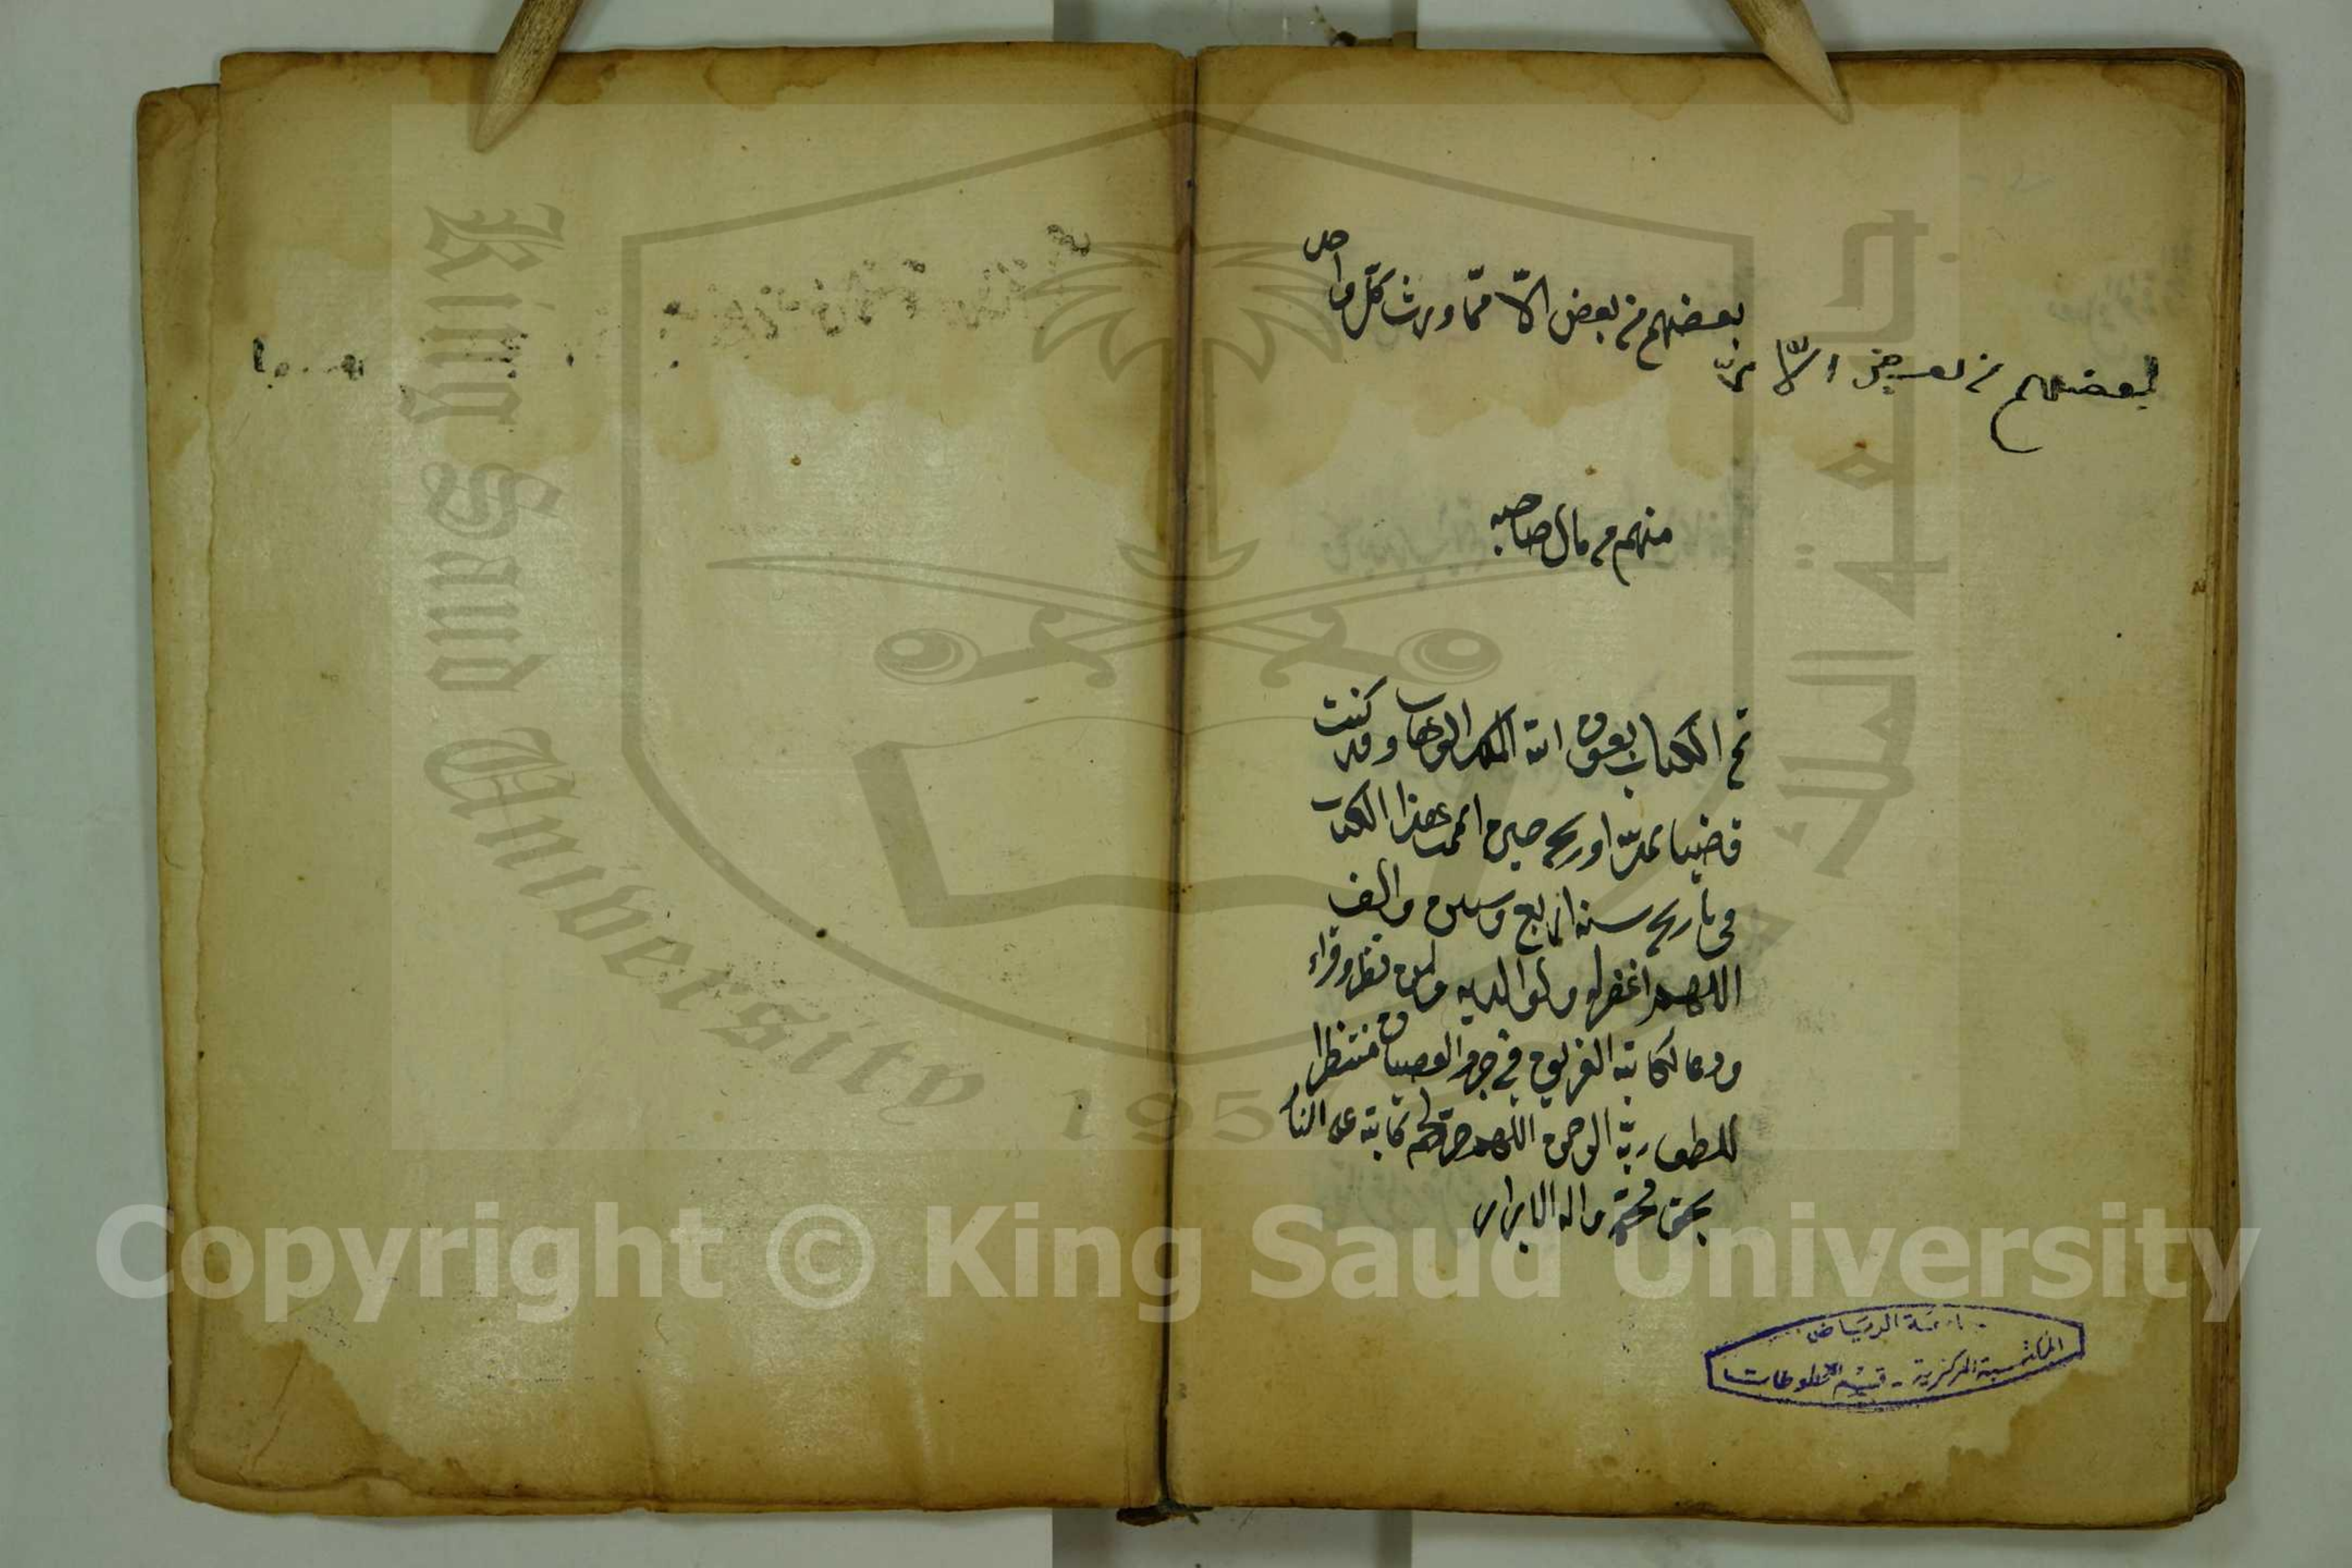 بعضهم من بعض الا مما ورث كل واحد
بعضهم من بعض الا مما
منهم من مال صاحبه
تم الكتاب بعون الله الملك الوهاب وقد كنت
قاضيا حين اتممت هذا الكتاب
فى تاريخ سنه اربع وستين والف
اللهم اغفر له ولوالديه ولمن نظر وقراء
ودعا لكاتبه الغريق في جرم العصيان منتظرا
للطف ربه الرحمن اللهم حرم كاتبه على النار
بحق محمد واله الابرار
جامعة الرياض
المكتبة المركزية - قسم المخطوطات
King Saud University
1957
جامعة الملك سعود
Copyright © King Saud University